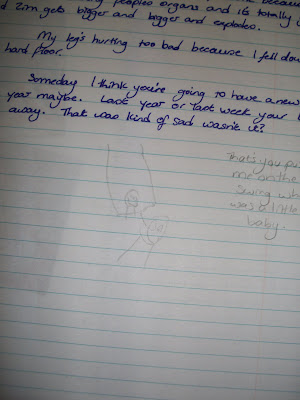 peoples organs and it's totally
d Zim gets bigger and bigger and explodes.
My leg's hurting too bad because I fell dow
hard floor.
Someday I think you're going to have a new
year maybe. Last year or last week your
away. That was kind of sad wasn't it?
That's you pu
me on the
swing wh
was a little
baby.